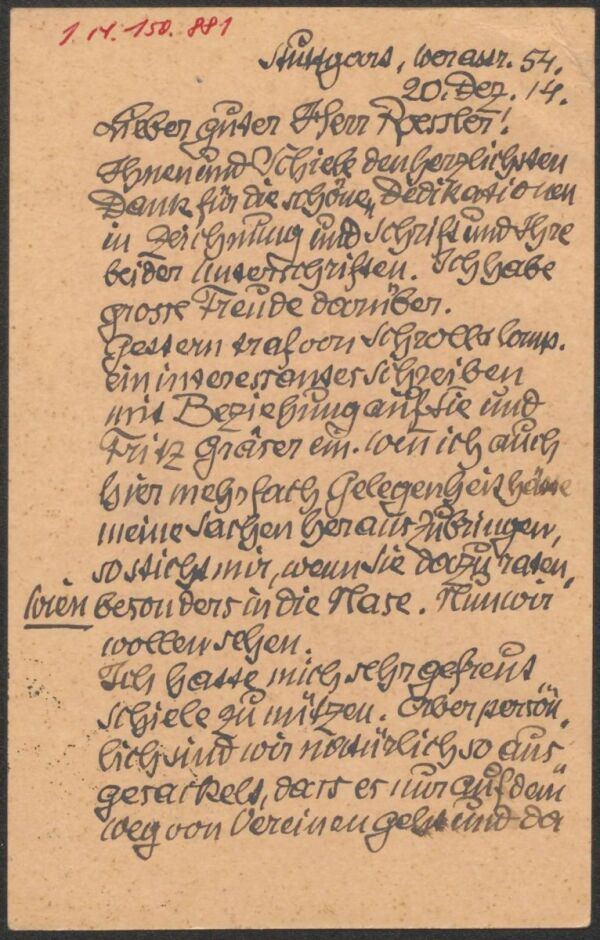 1. N. 150. 881
Stuttgart, Werastr. 54.
20. Dez. 14.
Lieber guter Herr Roessler!
Ihnen und Schiele den herzlichsten
Dank für die schönen Dedikationen
in Zeichnung und Schrift und Ihre
beider Unterschriften. Ich habe
grosse Freude darüber.
Gestern traf von Schrolls Comp.
ein interessantes Schreiben
mit Beziehung auf Sie und
Fritz Gräser ein. Wen̄ ich auch
hier mehrfach Gelegenheit hätte
meine Sachen herauszubringen,
so sticht mir, wenn Sie dazu raten,
Wien besonders in die Nase. Nun wir
wollen sehen.
Ich hatte mich sehr gefreut
Schiele zu nützen. Aber persön-
lich sind wir natürlich so aus
gesackelt, dass es nur auf dem
Weg von Vereinen geht und da